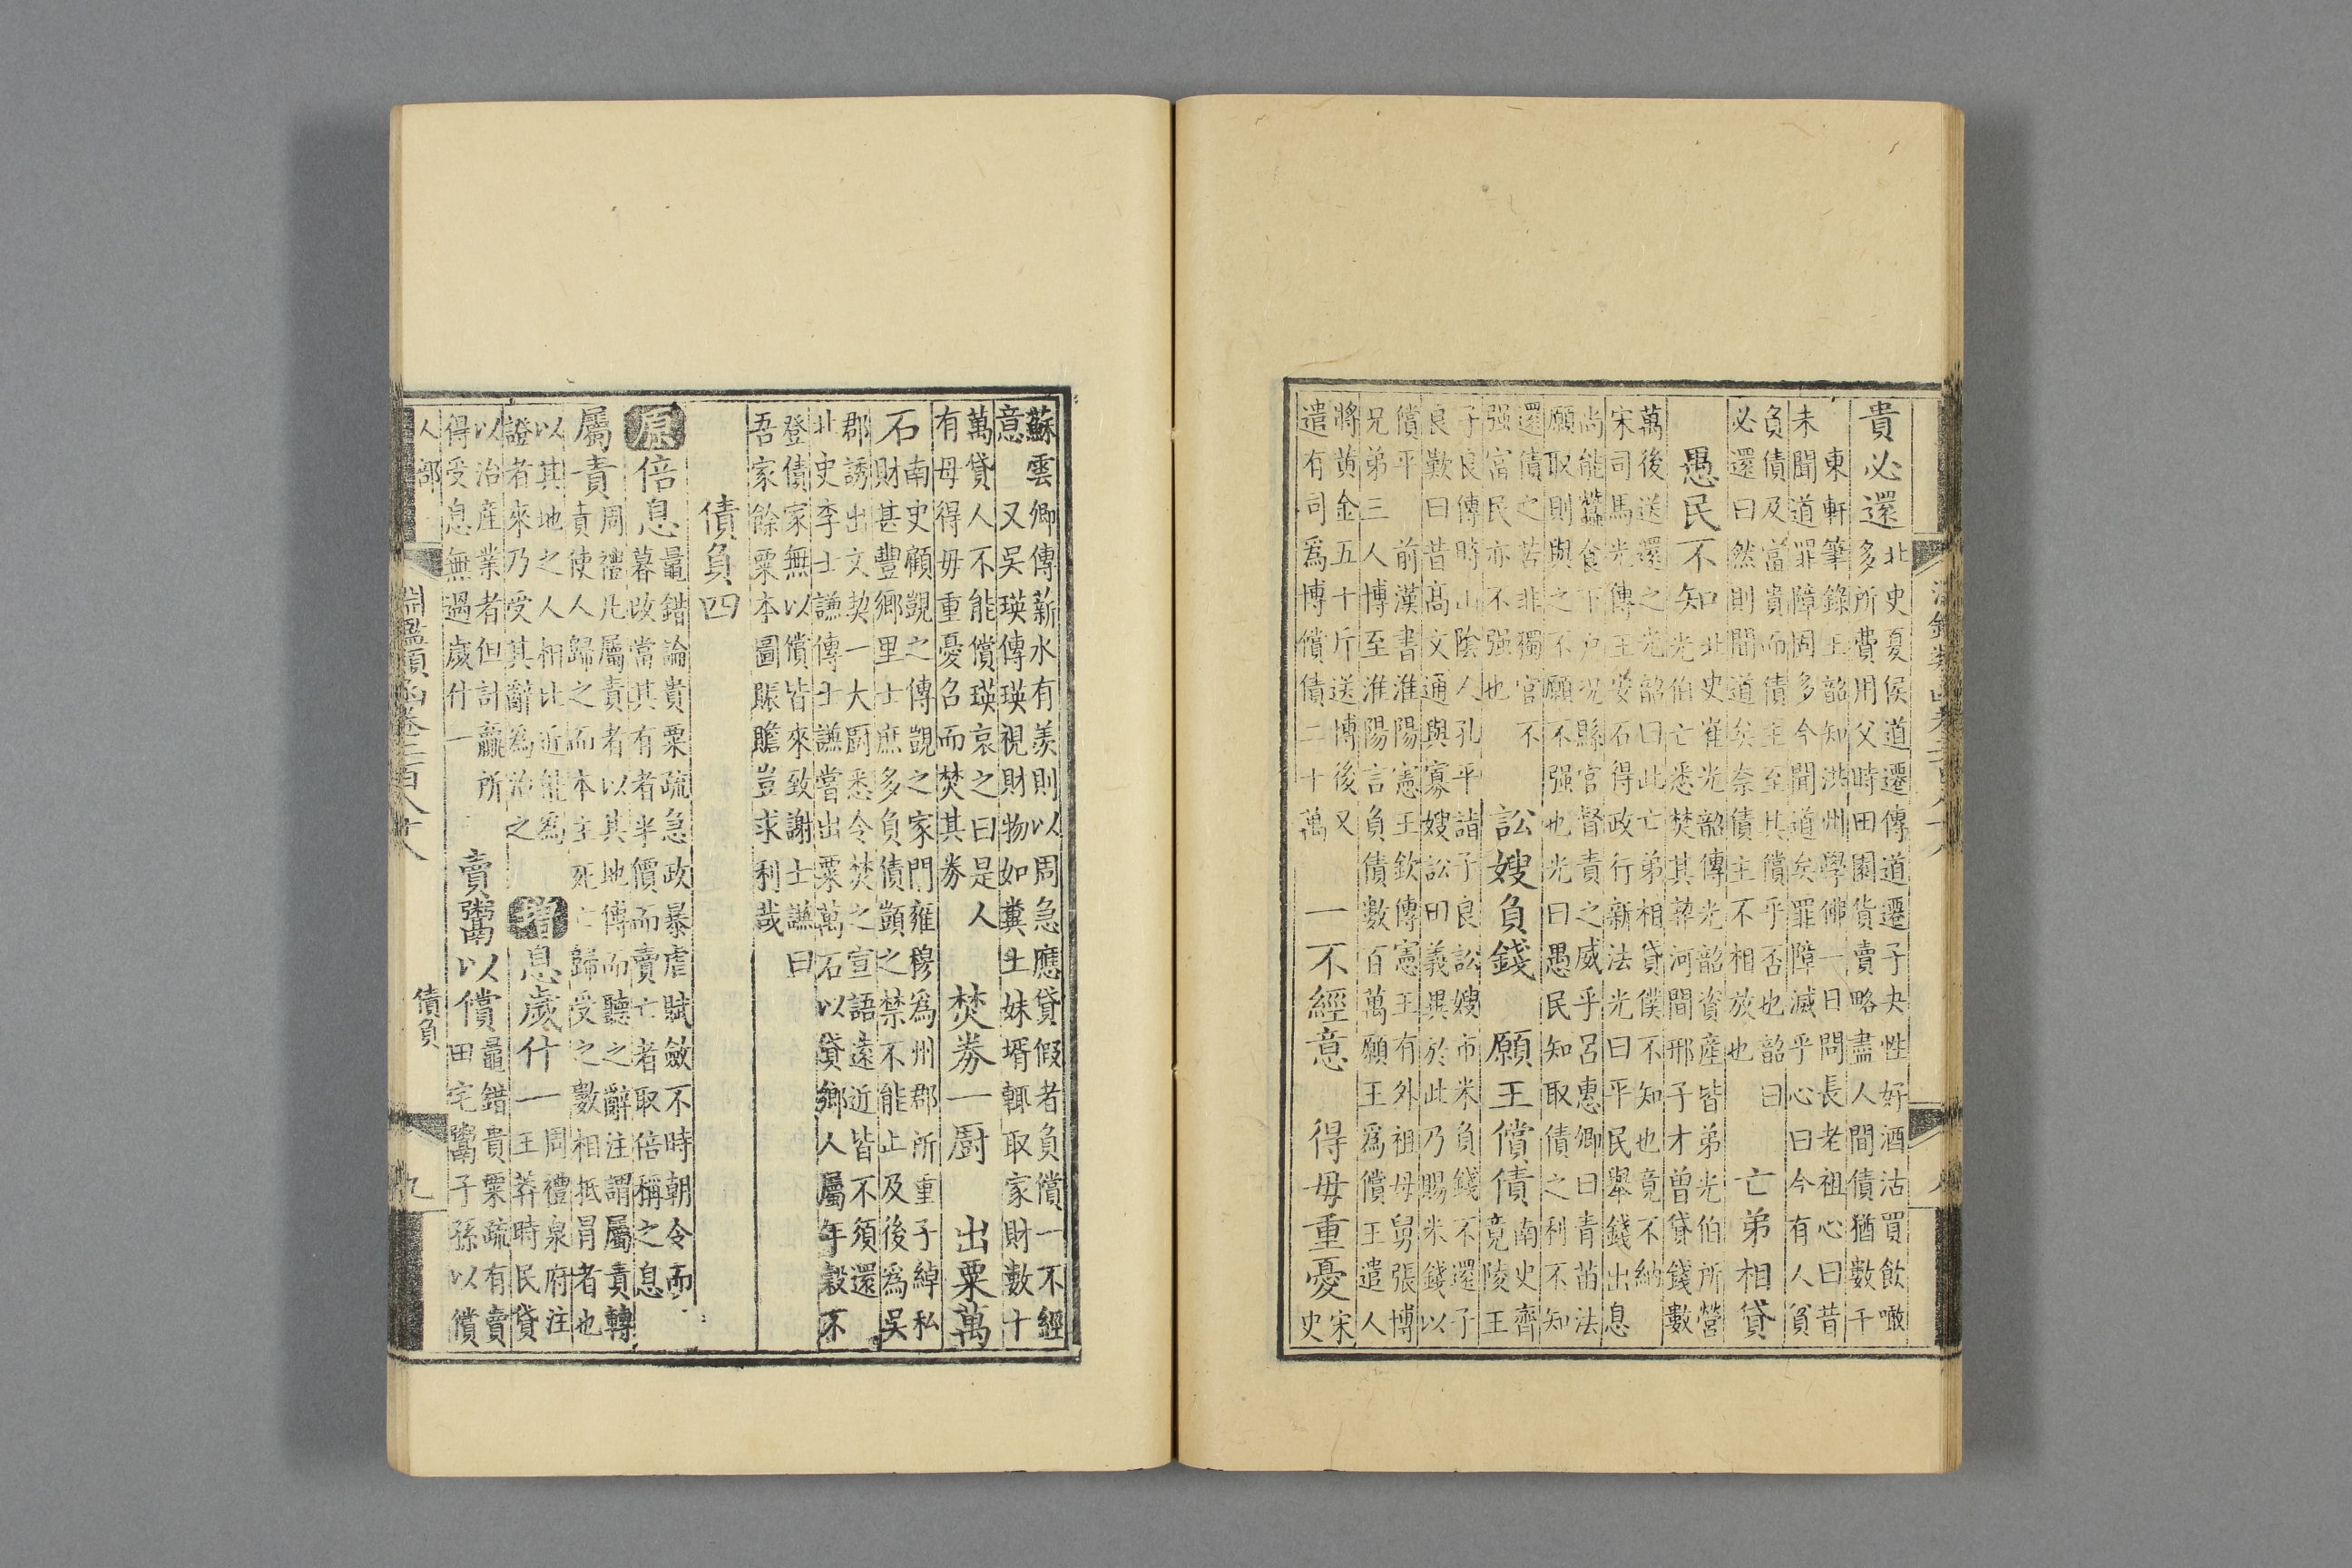 貴必還
北史夏侯道遷傳道遷子夬性好酒沽買飲噉
多所費用父時田園貨賣略盡人間債猶數千
東軒筆錄王韶知洪州學佛一日問長老祖心曰昔
未聞道罪障固多今聞道矣罪障滅乎心曰今有人負
負債及富貴而債主至其償乎否也韶曰
必還曰然則聞道矣奈債主不相放也
亡弟相貸
愚民不知
北史崔光韶傳光韶資產皆弟光伯所營
光伯亡悉焚其契河間邢子才曾貸錢數
萬後送還之光韶曰此亡弟相貸僕不知也竟不納
宋司馬光傳王安石得政行新法光曰平民舉錢出息
尚能蠶食下户况縣官督責之威乎呂惠卿曰青苗法
願取則與之不願不强也光曰愚民知取債之利不知
還債之苦非獨官不
强富民亦不强也
訟嫂負錢　願王償債
南史齊
竟陵王
子良傳時山陰人孔平詣子良訟嫂市米負錢不還子
良歎曰昔高文通與寡嫂訟田義異於此乃賜米錢以
償平　前漢書淮陽憲王欽傳憲王有外祖母舅張博
兄弟三人博至淮陽言負債數百萬願王爲償王遣人
將黄金五十斤送博後又
遣有司爲博償債二十萬
一不經意　得毋重憂
宋
史
蘇雲卿傳薪水有羡則以周急應貸假者負償一不經
意　又吳瑛傳瑛視財物如糞土妹壻輒取家財數十
萬貸人不能償瑛哀之曰是人
有母得毋重憂召而焚其券
焚券一厨　出粟萬
石
南史顧覬之傳覬之家門雍穆爲州郡所重子綽私
財甚豐鄉里士庶多負債顗之禁不能止及後爲吳
郡誘出文契一大厨悉令焚之宣語遠近皆不須還
北史李士謙傳士謙嘗出粟萬石以貸鄉人屬年穀不
登債家無以償皆來致謝士謙曰
吾家餘粟本圖賑贍豈求利哉
債負四
原
倍息
鼂錯論貴粟疏急政暴虐賦斂不時朝令而
暮改當其有者半價而賣亡者取倍稱之息
屬責
周禮凡屬責者以其地傅而聽之辭注謂屬責轉
責使人歸之而本主死亡歸受之數相抵冒者也
以其地之人相比近能為
證者來乃受其辭為治之
增
息歲什一
周禮泉府注
王莽時民貸
以治產業者但計贏所
得受息無過歲什一
賣鬻以償
鼂錯貴粟疏有賣
田宅鬻子孫以償
人部
淵鑑類函卷三百八十八
債負
九